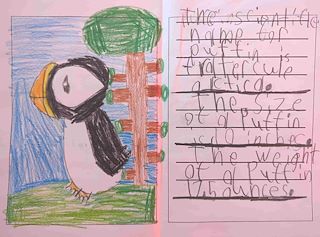 The scientific
name for
puffin is
fratercule
arctica.
The size
of a puffin
is 10 inches.
The weight
of a puffin
17.5 ounces.